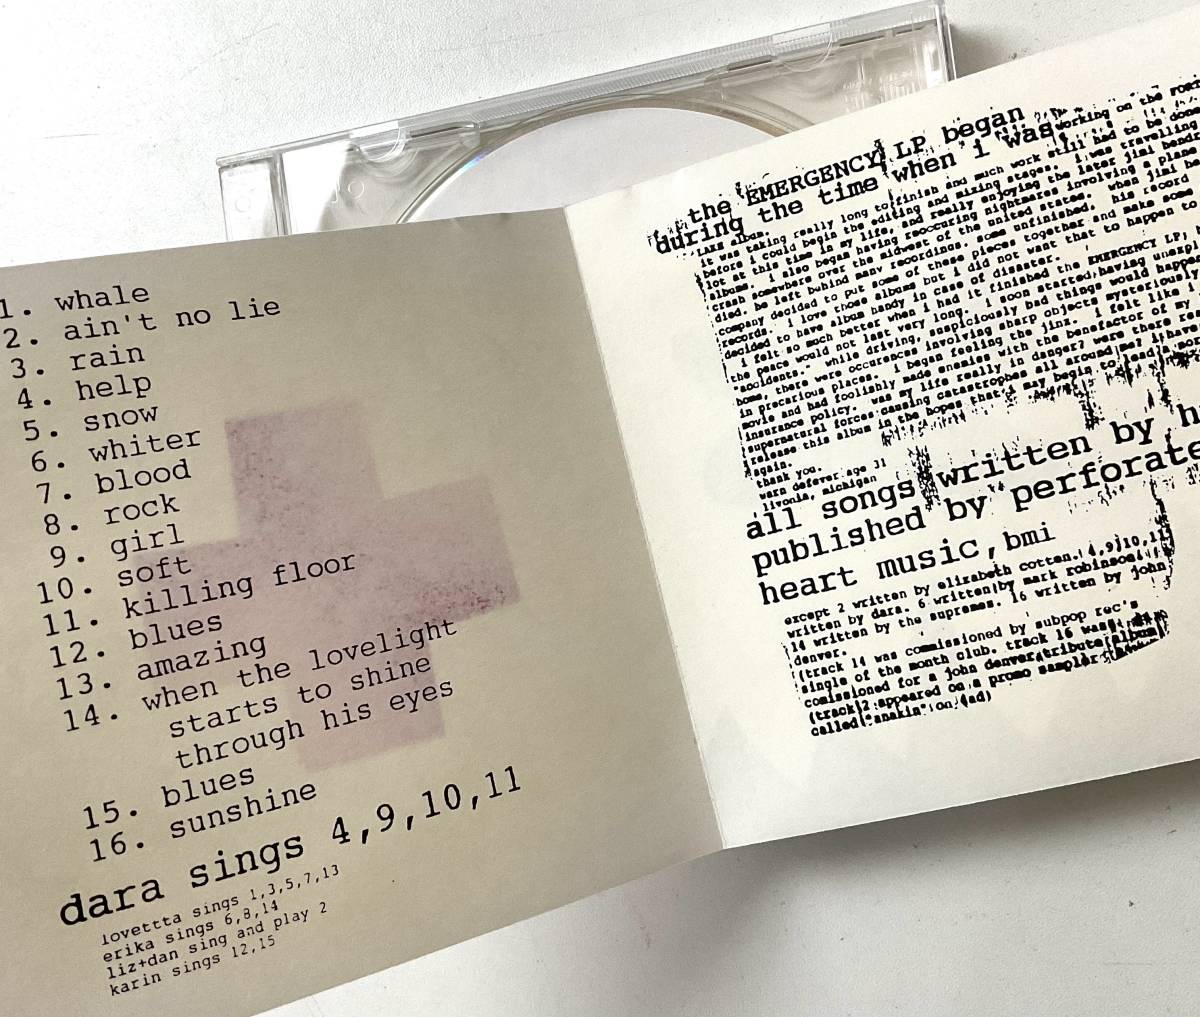 1. whale
2. ain't no lie
3. rain
4. help
5. snow
6. whiter
7. blood
8. rock
9. girl
10. soft
11. killing floor
12. blues
13. amazing
14. when the lovelight
starts to shine
through his eyes
15. blues
16. sunshine
dara sings 4,9,10,11
lovettta sings 1,3,5,7,13
erika sings 6,8,14
liz+dan sing and play 2
karin sings 12,15
the EMERGENCY LP began
during the time when i was working on the
album.
it was taking really long to finish and much work still had to be done
before i could begin the editing and mixing stages. i was travelling
lot at this time in my life, and really enjoying the later jimi
albums. i also began having reoccuring nightmares involving a plane
crash somewhere over the midwest of the united states. when jimi
died, he left behind many recordings, some unfinished. his record
company decided to put some of these pieces together and make some
records. i love those albums but i did not want that to happen to
decided to have album handy in case of disaster.
i felt so much better when i had it finished the EMERGENCY LP,
the peace would not last very long. i soon started having
"accidents." while driving, suspiciously bad things would
home, there were occurences involving sharp objects mysteriously
in precarious places. i began feeling the jinx. i felt like i
movie and had foolishly made enemies with the benefactor of my
insurance policy. was my life really in danger? were there
supernatural forces causing catastrophes all around me? i have
release this album in the hopes that i may begin to lead a
again.
thank you.
warn defever age 31
livonia, michigan
all songs written by
published by
heart music, bmi
except 2 written by elizabeth cotten. 4,9,10,11
written by dara. 6 written by mark robinson.
14 written by the supremes. 16 written by john
denver.
(track 14 was commissioned by subpop rec's
single of the month club. track 16 was
comissioned for a john denver tribute album
(track 2 appeared on a promo sampler
called "anakin" on 4ad)